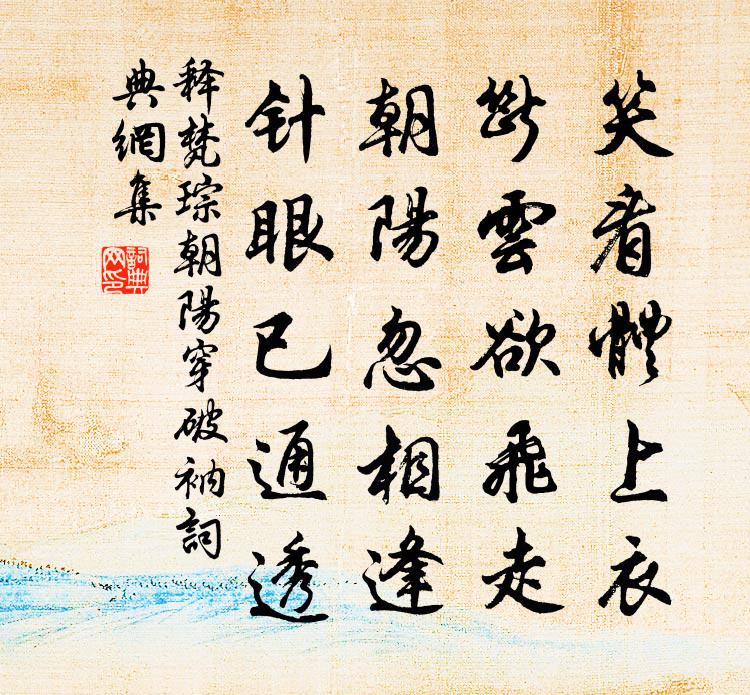 笑看體上衣
斷雲欲飛走
朝陽忽相逢
针眼已通透
释梵琮朝陽穿破衲詞
典網集
詞典
网印